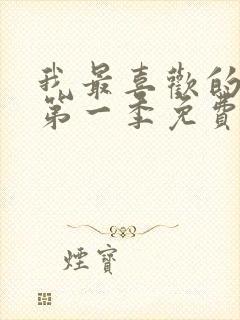 我最喜歡的
第一季免費
煙寶